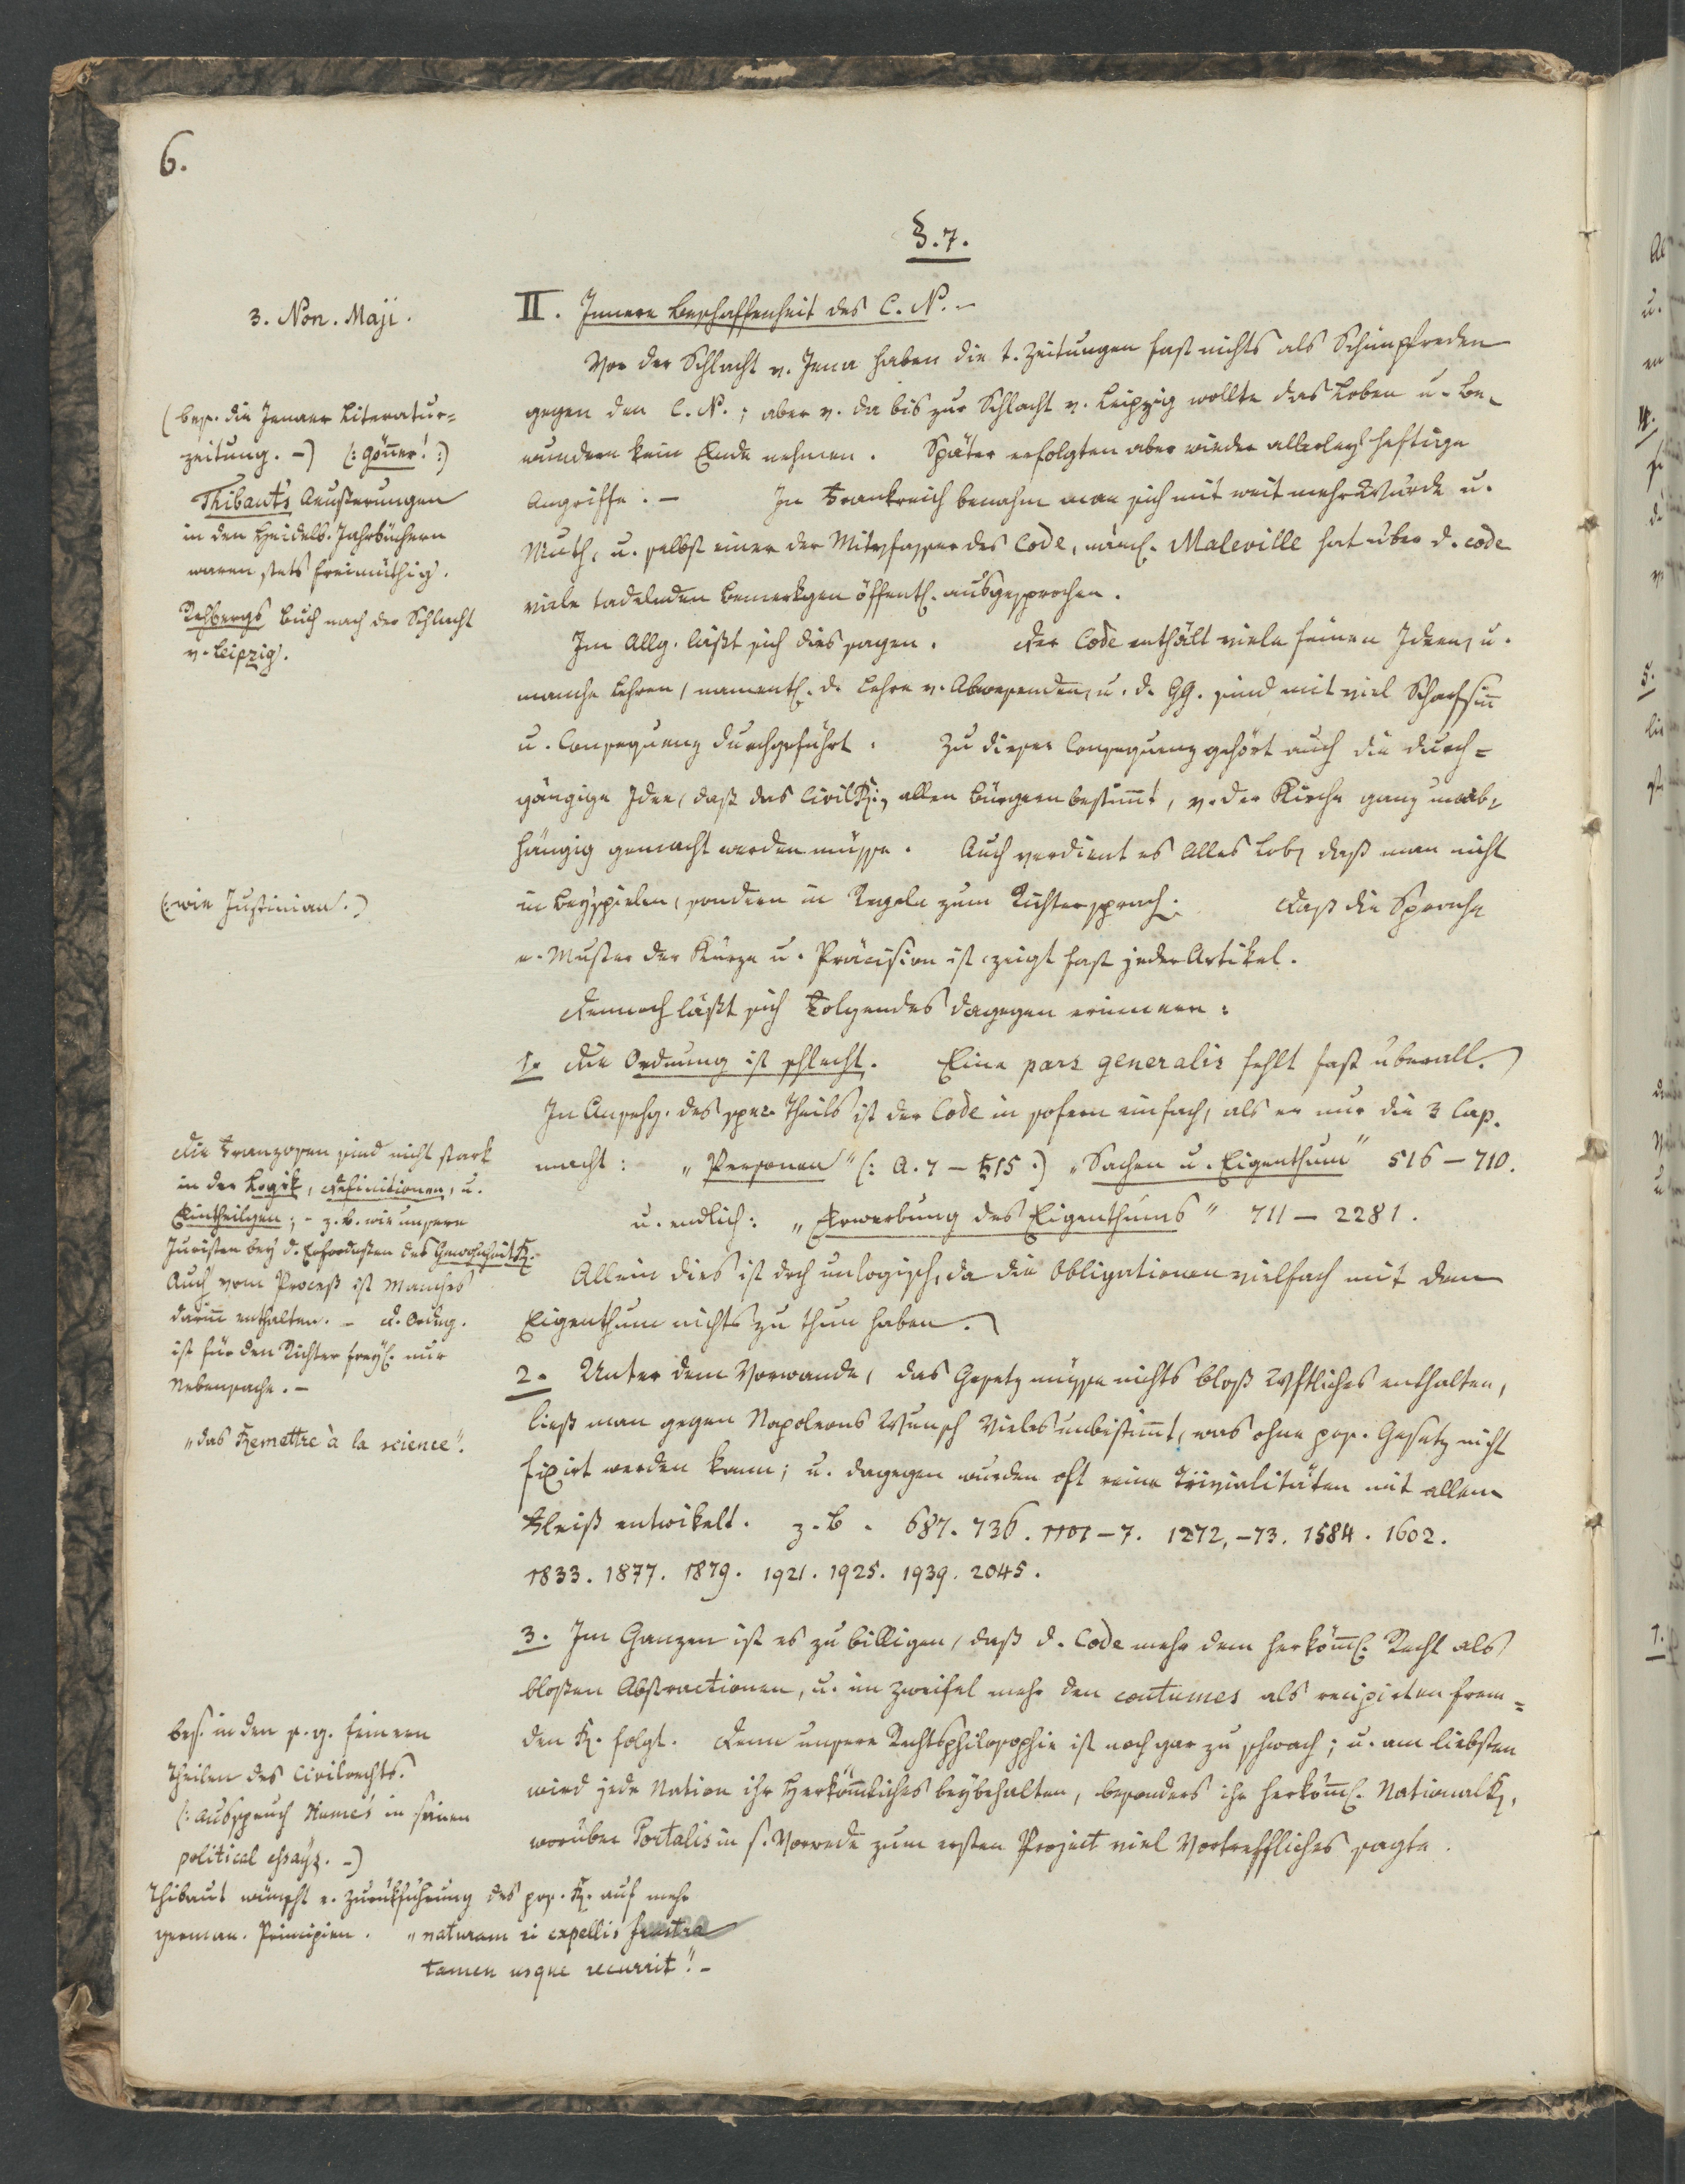 6.
§. 7.
3. Non. Maji.
II. Innere Beschaffenheit des C. N. -
Vor der Schlacht v. Jena haben die t. Zeitungen fast nichts als Schimpfreden
gegen den C. N.; aber v. da bis zur Schlacht v. Leipzig wollte das Loben u. Be-
wundern kein Ende nehmen. Später erfolgten aber wieder allerley heftige
Angriffe. - In Frankreich benahm man sich mit weit mehr Würde u.
Muth, u. selbst einer der Mitvfasser des Code, näml. Maleville hat über d. code
viele tadelnden Bemerkgen öffentl. ausgesprochen.
(bes. die Jenaer Literatur-
zeitung. -) (: Gönner! :)
Thibaut's Aeußerungen
in den Heidelb. Jahrbüchern
waren stets freimüthig.
Rehbergs Buch nach der Schlacht
v. Leipzig.
Im Allg. läßt sich dies sagen. Der Code enthält viele feinen Ideen, u.
manche Lehren, namentl. d. Lehre v. Abwesenden, u. d. GG. sind mit viel Scharfsinn
u. Consequenz durchgeführt. Zu dieser Consequenz gehört auch die durch-
gängige Idee, daß das CivilR., allen Bürgern bestimmt, v. der Kirche ganz unab-
hängig gemacht werden müsse. Auch verdient es Alles Lob, daß man nicht
in Beyspielen, sondern in Regeln zum Richter sprach. Daß die Sprache
e. Muster der Kürze u. Präcision ist, zeigt fast jeder Artikel.
(: wie Justinian. )
Dennoch läßt sich Folgendes dagegen erinnern:
1. Die Ordnung ist schlecht. Eine pars generalis fehlt fast überall.
In Ansehg. des spec. Theils ist der Code in sofern einfach, als er nur die 3 Cap.
macht: „Personen" (: A. 7 - 515 :) „Sachen u. Eigenthum" 516 - 710.
u. endlich: „Erwerbung des Eigenthums" 711 - 2281.
Allein dies ist doch unlogisch, da die Obligationen vielfach mit dem
Eigenthum nichts zu thun haben.
Die Franzosen sind nicht stark
in der Logik, Definitionen, u.
Eintheilgen; - z. B. wie unsere
Juristen bey d. Erfordnßen des GewohnheitsR.-
Auch vom Proceß ist Manches
darinn enthalten. - d. Ordng.
ist für den Richter freyl. nur
Nebensache. -
2. Unter dem Vorwande, das Gesetz müsse nichts bloß Wßftliches enthalten,
ließ man gegen Napoleons Wunsch Vieles unbestimmt, was ohne pos. Gesetz nicht
fixirt werden kann; u. dagegen wurden oft reine Trivialitäten mit allem
Fleiß entwikelt. z. B. 687. 736. 1101-7. 1272,-73. 1584. 1602.
1833. 1877. 1879. 1921. 1925. 1939. 2045.
„das Remettre à la science".
3. Im Ganzen ist es zu billigen, daß d. Code mehr dem herkömml. Recht als
bloßen Abstractionen, u. im Zweifel mehr den coutumes als recipirten frem-
den R. folgt. Denn unsere Rechtsphilosophie ist noch gar zu schwach; u. am liebsten
wird jede Nation ihr Herkömmliches beybehalten, besonders ihr herkömml. NationalR.,
worüber Portalis in s. Vorrede zum ersten Project viel Vortreffliches sagte.
bes. in den s. g. feinern
Theilen des Civilrechts.
(: Ausspruch Hume's in seinen
political essays. -)
Thibaut wünscht e. Zurükführung des pos. R. auf mehr
german. Principien. „naturam si expellis frustra
tamen usque recurrit"! -